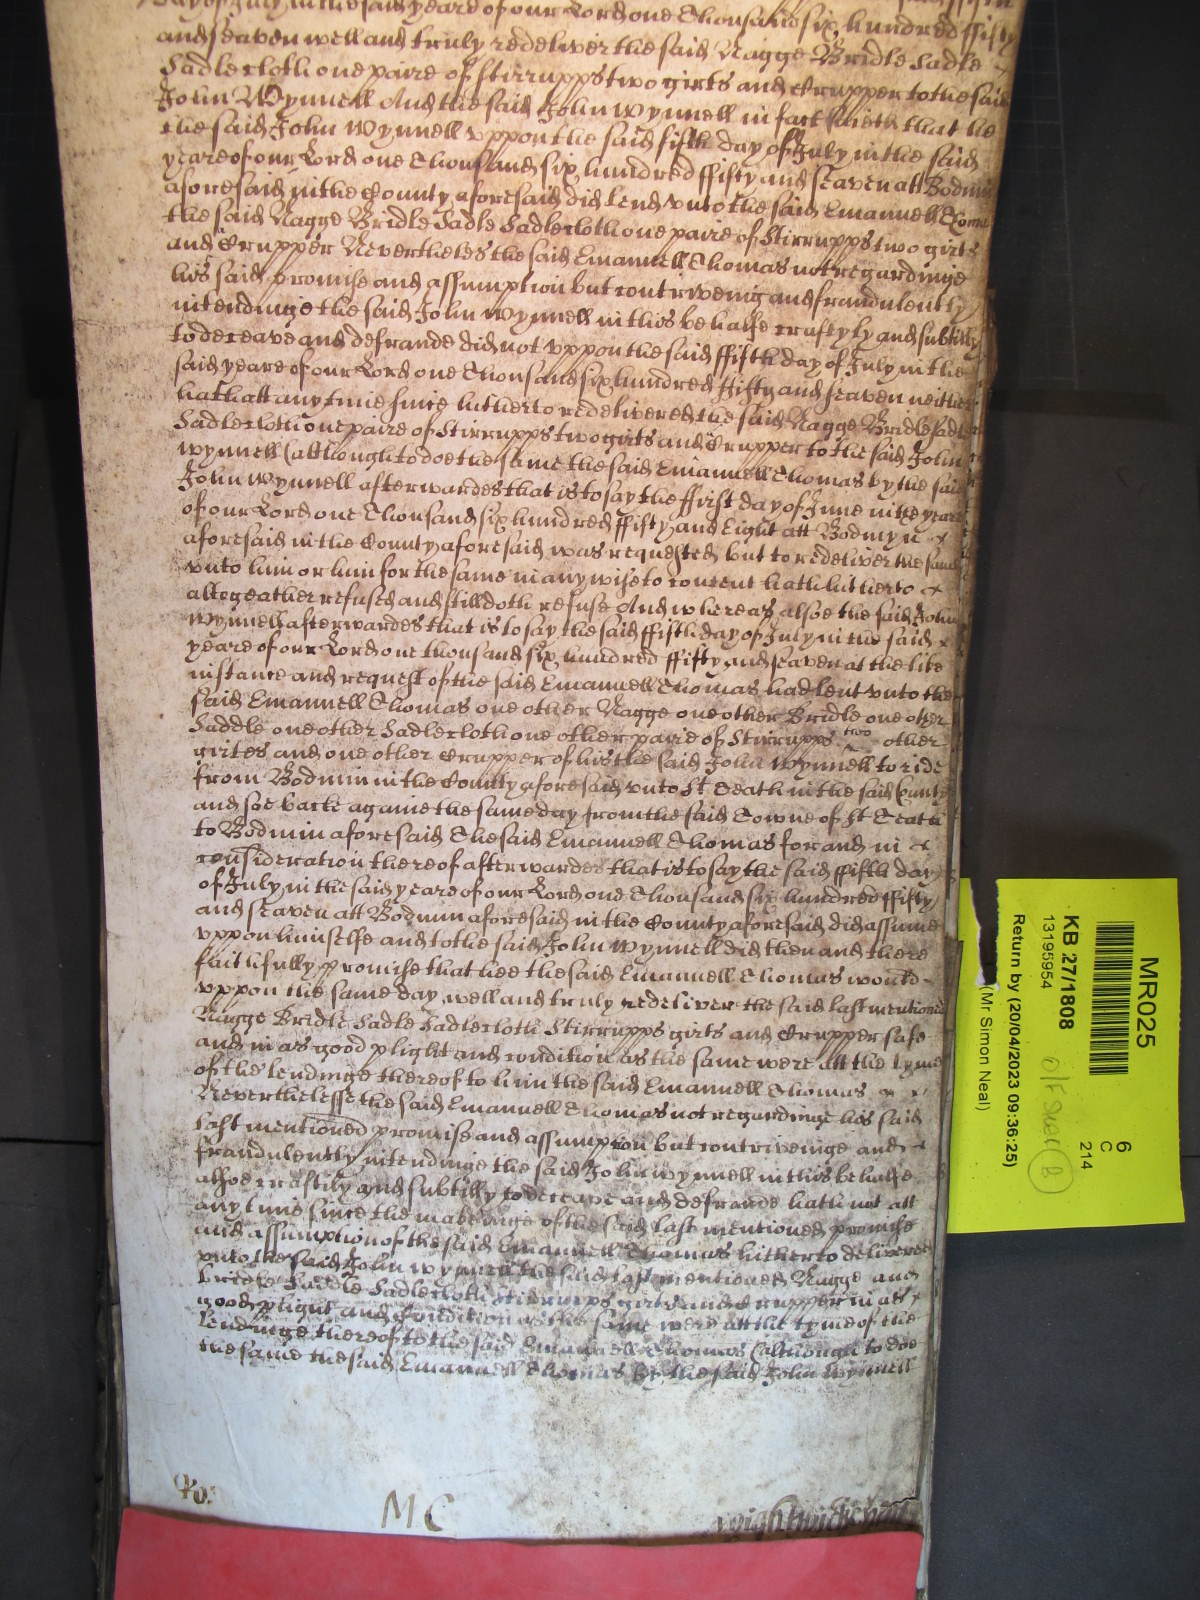 day of July in the said yeare of our Lord one Thousand six hundred ffifty
and seaven well and truly redeliver the said Nagge Bridle Sadle
Sadlecloth one paire of Stirrupps two girts and Crupper to the said
John Wynnell And the said John Wynnell in fact saieth that he
the said John Wynnell vppon the said fifth day of July in the said
yeare of our Lord one Thousand six hundred ffifty and seaven att Bodmin
aforesaid in the County aforesaid did lend vnto the said Emanuell Thomas
the said Nagge Bridle Sadle Sadlecloth one paire of Stirrupps two girts
and Crupper Neverthelesse the said Emanuell Thomas not regardinge
his said promise and assumption but contriveing and frandulently
intendinge the said John Wynnell in this behalfe craftyly and subtilly
to deceave and defraude did not vppon the said ffifth day of July in the
said yeare of our Lord one Thousand six hundred ffifty and seaven neither
hath att any time since hitherto redelivered the said Nagge Bridle Sadle
Sadlecloth one paire of Stirrupps two girts and Crupper to the said John
Wynnell (although to doe the same the said Emanuell Thomas by the said
John Wynnell afterwardes that is to say the ffirst day of June in the yeare
of our Lord one Thousand six hundred ffifty and Eight att Bodmyn
aforesaid in the County aforesaid was requested but to redeliver the same
vnto him or him for the same in any wise to content hath hitherto
altogeather refused and still doth refuse And whereas alsoe the said John
Wynnell afterwardes that is to say the said ffifth day of July in the said
yeare of our Lord one thousand six hundred ffifty and seaven at the like
instance and request of the said Emanuell Thomas had lent vnto the
said Emanuell Thomas one other Nagge one other Bridle one other
Saddle one other Sadlecloth one other paire of Stirrupps two other
girtes and one other Crupper of his the said John Wynnell to ride
from Bodmin in the County aforesaid vnto St Teath in the said County
and soe backe againe the same day from the said Towne of St Teath
to Bodmin aforesaid The said Emanuell Thomas for and in
consideration thereof afterwardes that is to say the said ffifth day
of July in the said yeare of our Lord one Thousand six hundred ffifty
and seaven att Bodmin aforesaid in the County aforesaid did assume
vppon himselfe and to the said John Wynnell did then and there
faithfully promise that hee the said Emanuell Thomas would
vppon the same day well and truly redeliver the said last mentioned
Nagge Bridle Sadle Sadlecloth Stirrupps girts and Crupper safe
and in as good plight and condition as the same were att the tyme
of the lendinge thereof to him the said Emanuell Thomas
Neverthelesse the said Emanuell Thomas not regardinge his said
last mentioned promise and assumption but contriveinge and
fraudulently intendinge the said John Wynnell in this behalfe
alsoe craftily and subtilly to deceave and defraude hath not att
any time since the makeinge of the said last mentioned promise
and assumption of the said Emanuell Thomas hitherto delivered
vnto the said John Wynnell the said last mentioned Nagge and
Bridle Saddle Sadlecloth Stirrupps girts and Crupper in as
good plight and Condition as the same were att the tyme of the
lendinge thereof to the said Emanuell Thomas (although to doe
the same the said Emanuell Thomas by the said John Wynnell
MC
MR025
KB 27/1808
13195954
Return by (20/04/2023 09:36:25)
(Mr Simon Neal)
6
C
214